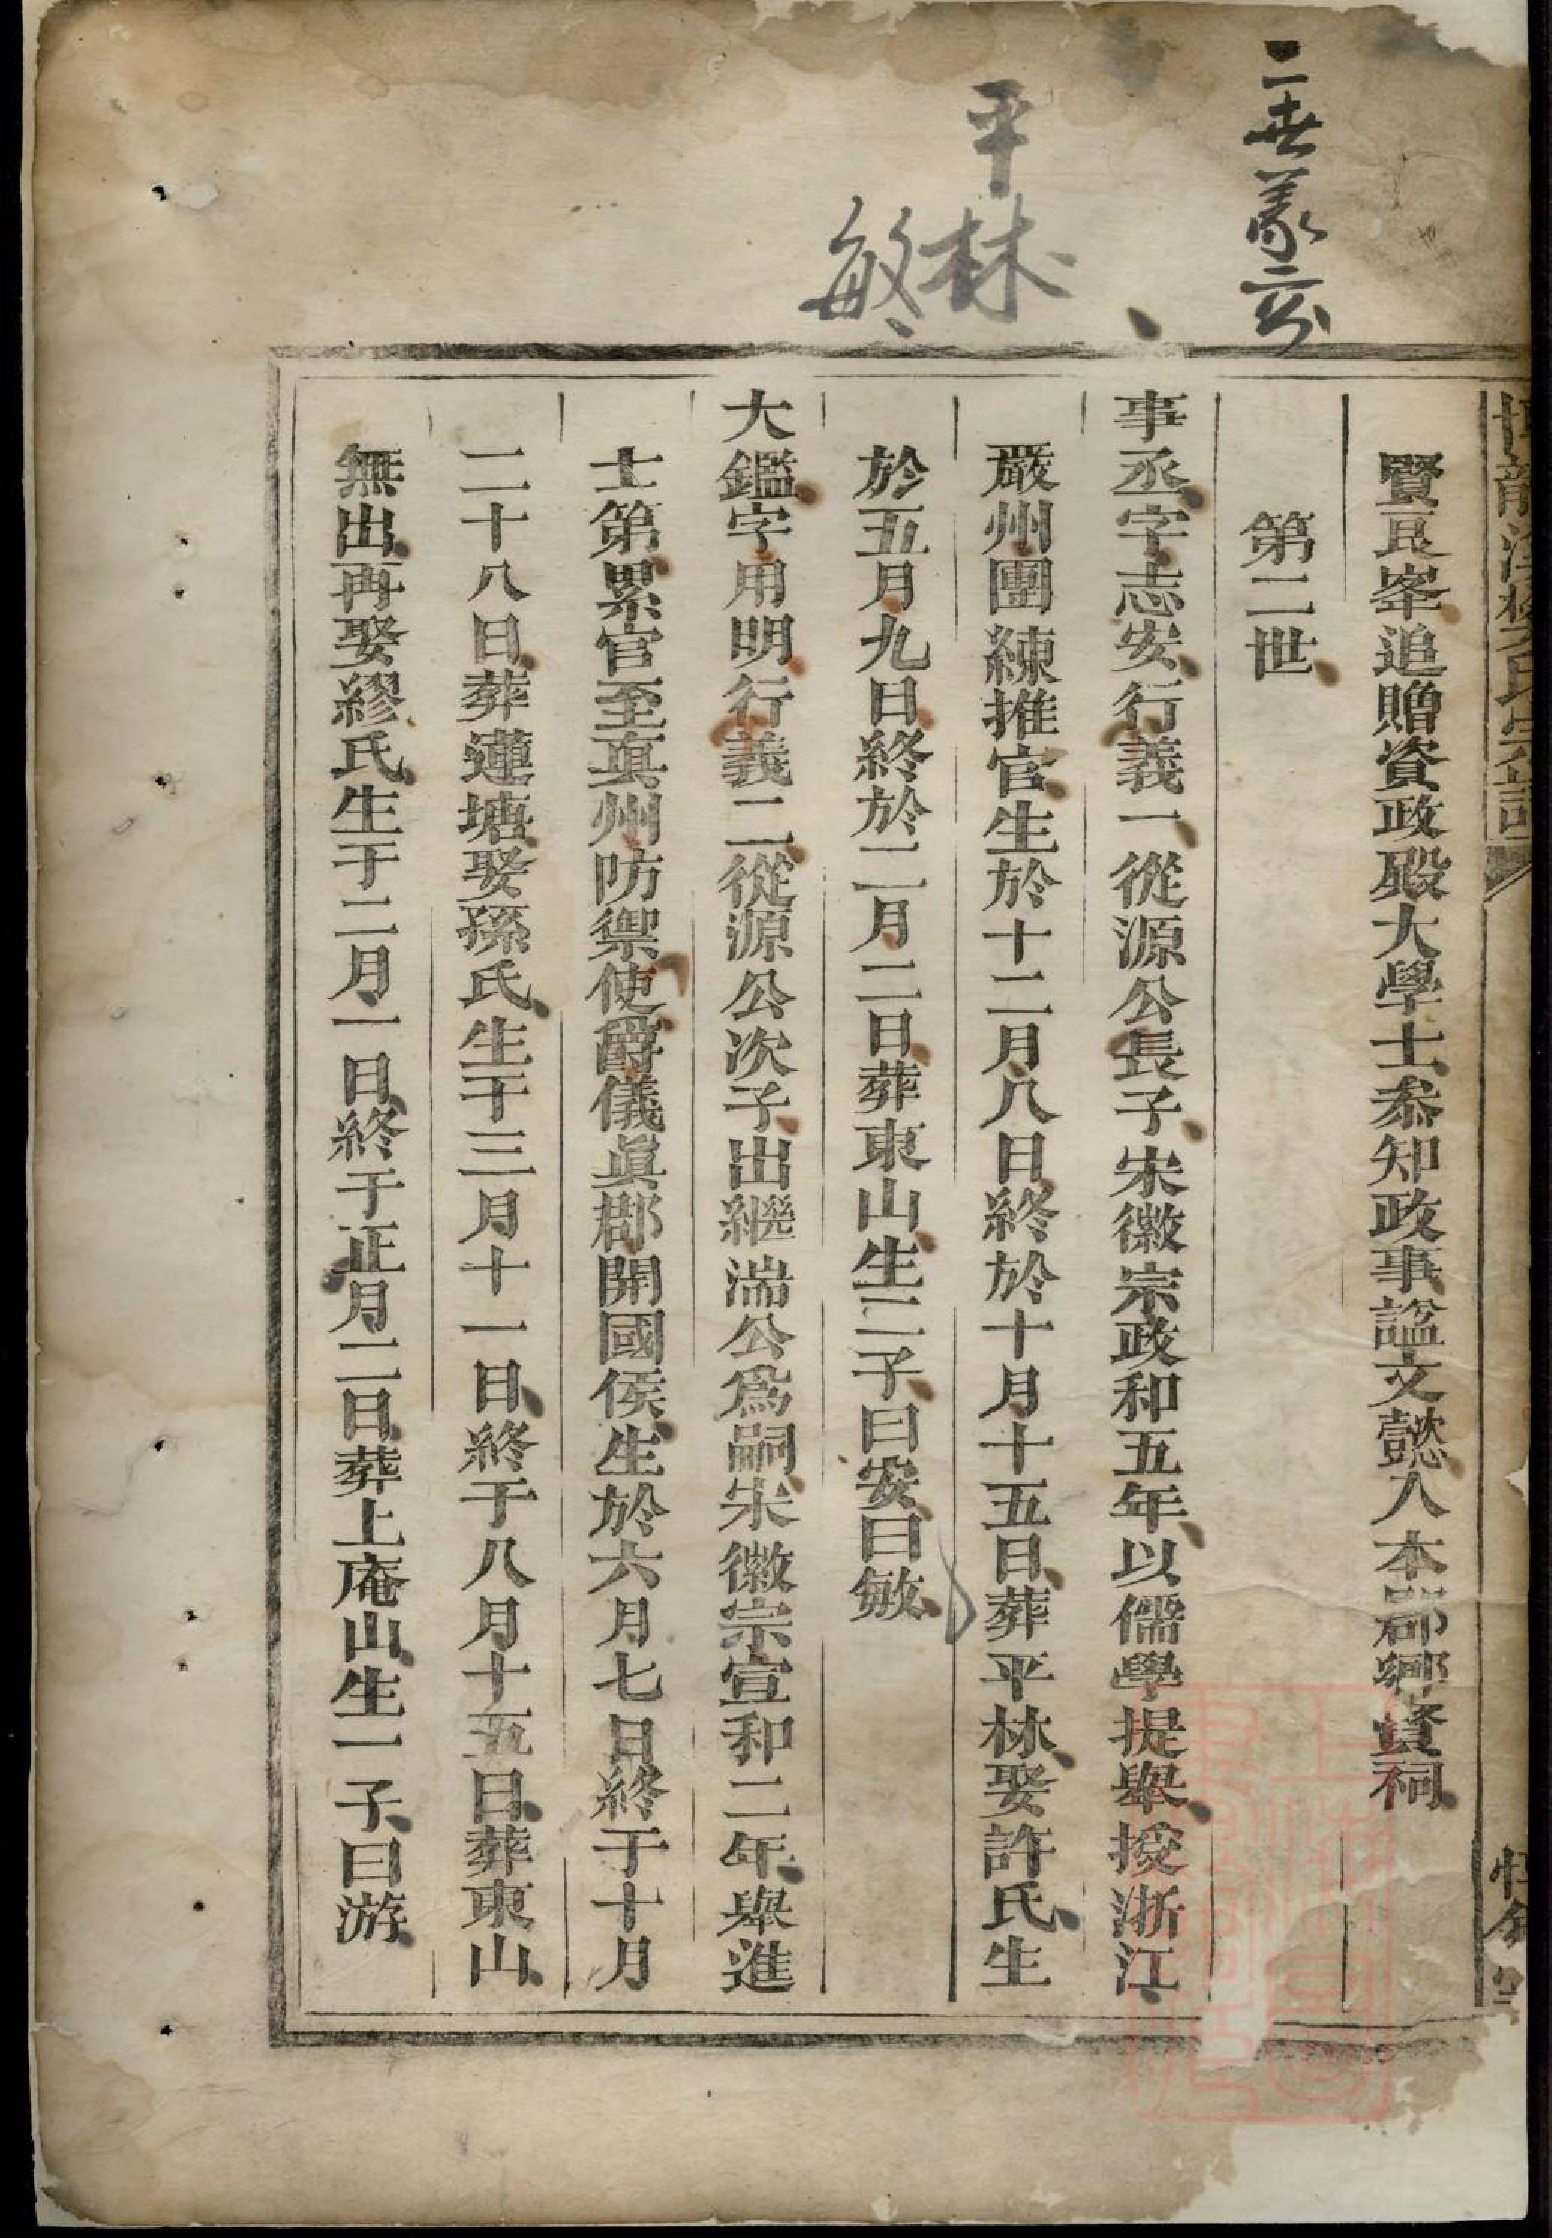 二世義
平林
敏
賢良峯追贈資政殿大學士叅知政事謚文懿入本郡鄉賢祠
第二世
事丞字志安行義一從源公長子宋徽宗政和五年以儒學提舉授浙江
嚴州團練推官生於十二月八日終於十月十五日葬平林娶許氏生
於五月九日終於二月二日葬東山生二子曰安曰敏
大鑑字用明行義二從源公次子出繼湍公爲嗣宋徽宗宣和二年舉進
士第累官至真州防禦使爵儀眞郡開國侯生於六月七日終于十月
二十八日葬蓮塘娶孫氏生于三月十一日終于八月十五日葬東山
無出再娶繆氏生于二月一日終于正月二日葬上庵山生一子曰游